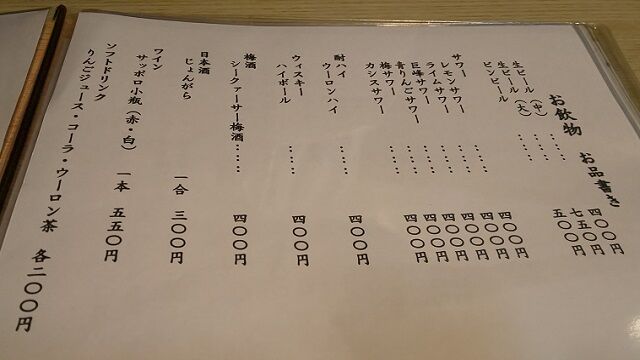 お飲物　お品書き
生ビール（中）・・・・四〇〇円
生ビール（大）・・・・七五〇円
ビンビール・・・・五〇〇円
サワー
レモンサワー・・・・四〇〇円
ライムサワー・・・・四〇〇円
巨峰サワー・・・・四〇〇円
青りんごサワー・・・・四〇〇円
梅サワー・・・・四〇〇円
カシスサワー・・・・四〇〇円
酎ハイ
ウーロンハイ・・・・四〇〇円
ウィスキー
ハイボール・・・・四〇〇円
梅酒
シークァーサー梅酒・・・・四〇〇円
日本酒
じょんがら　一合　三〇〇円
ワイン
サッポロ小瓶（赤・白）　一本　五五〇円
ソフトドリンク
りんごジュース・コーラ・ウーロン茶　各二〇〇円